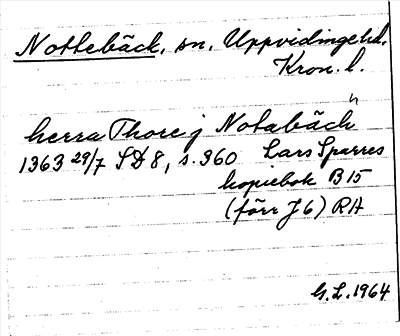 Nottebäck, sn, Uppvidinge hd.
Kron. l.
herra Thore j Notabäch
1363 29/7 SD 8, s. 360 Lars Sparres
kopiebok B 15
(förr J 6) RA
G. L. 1964